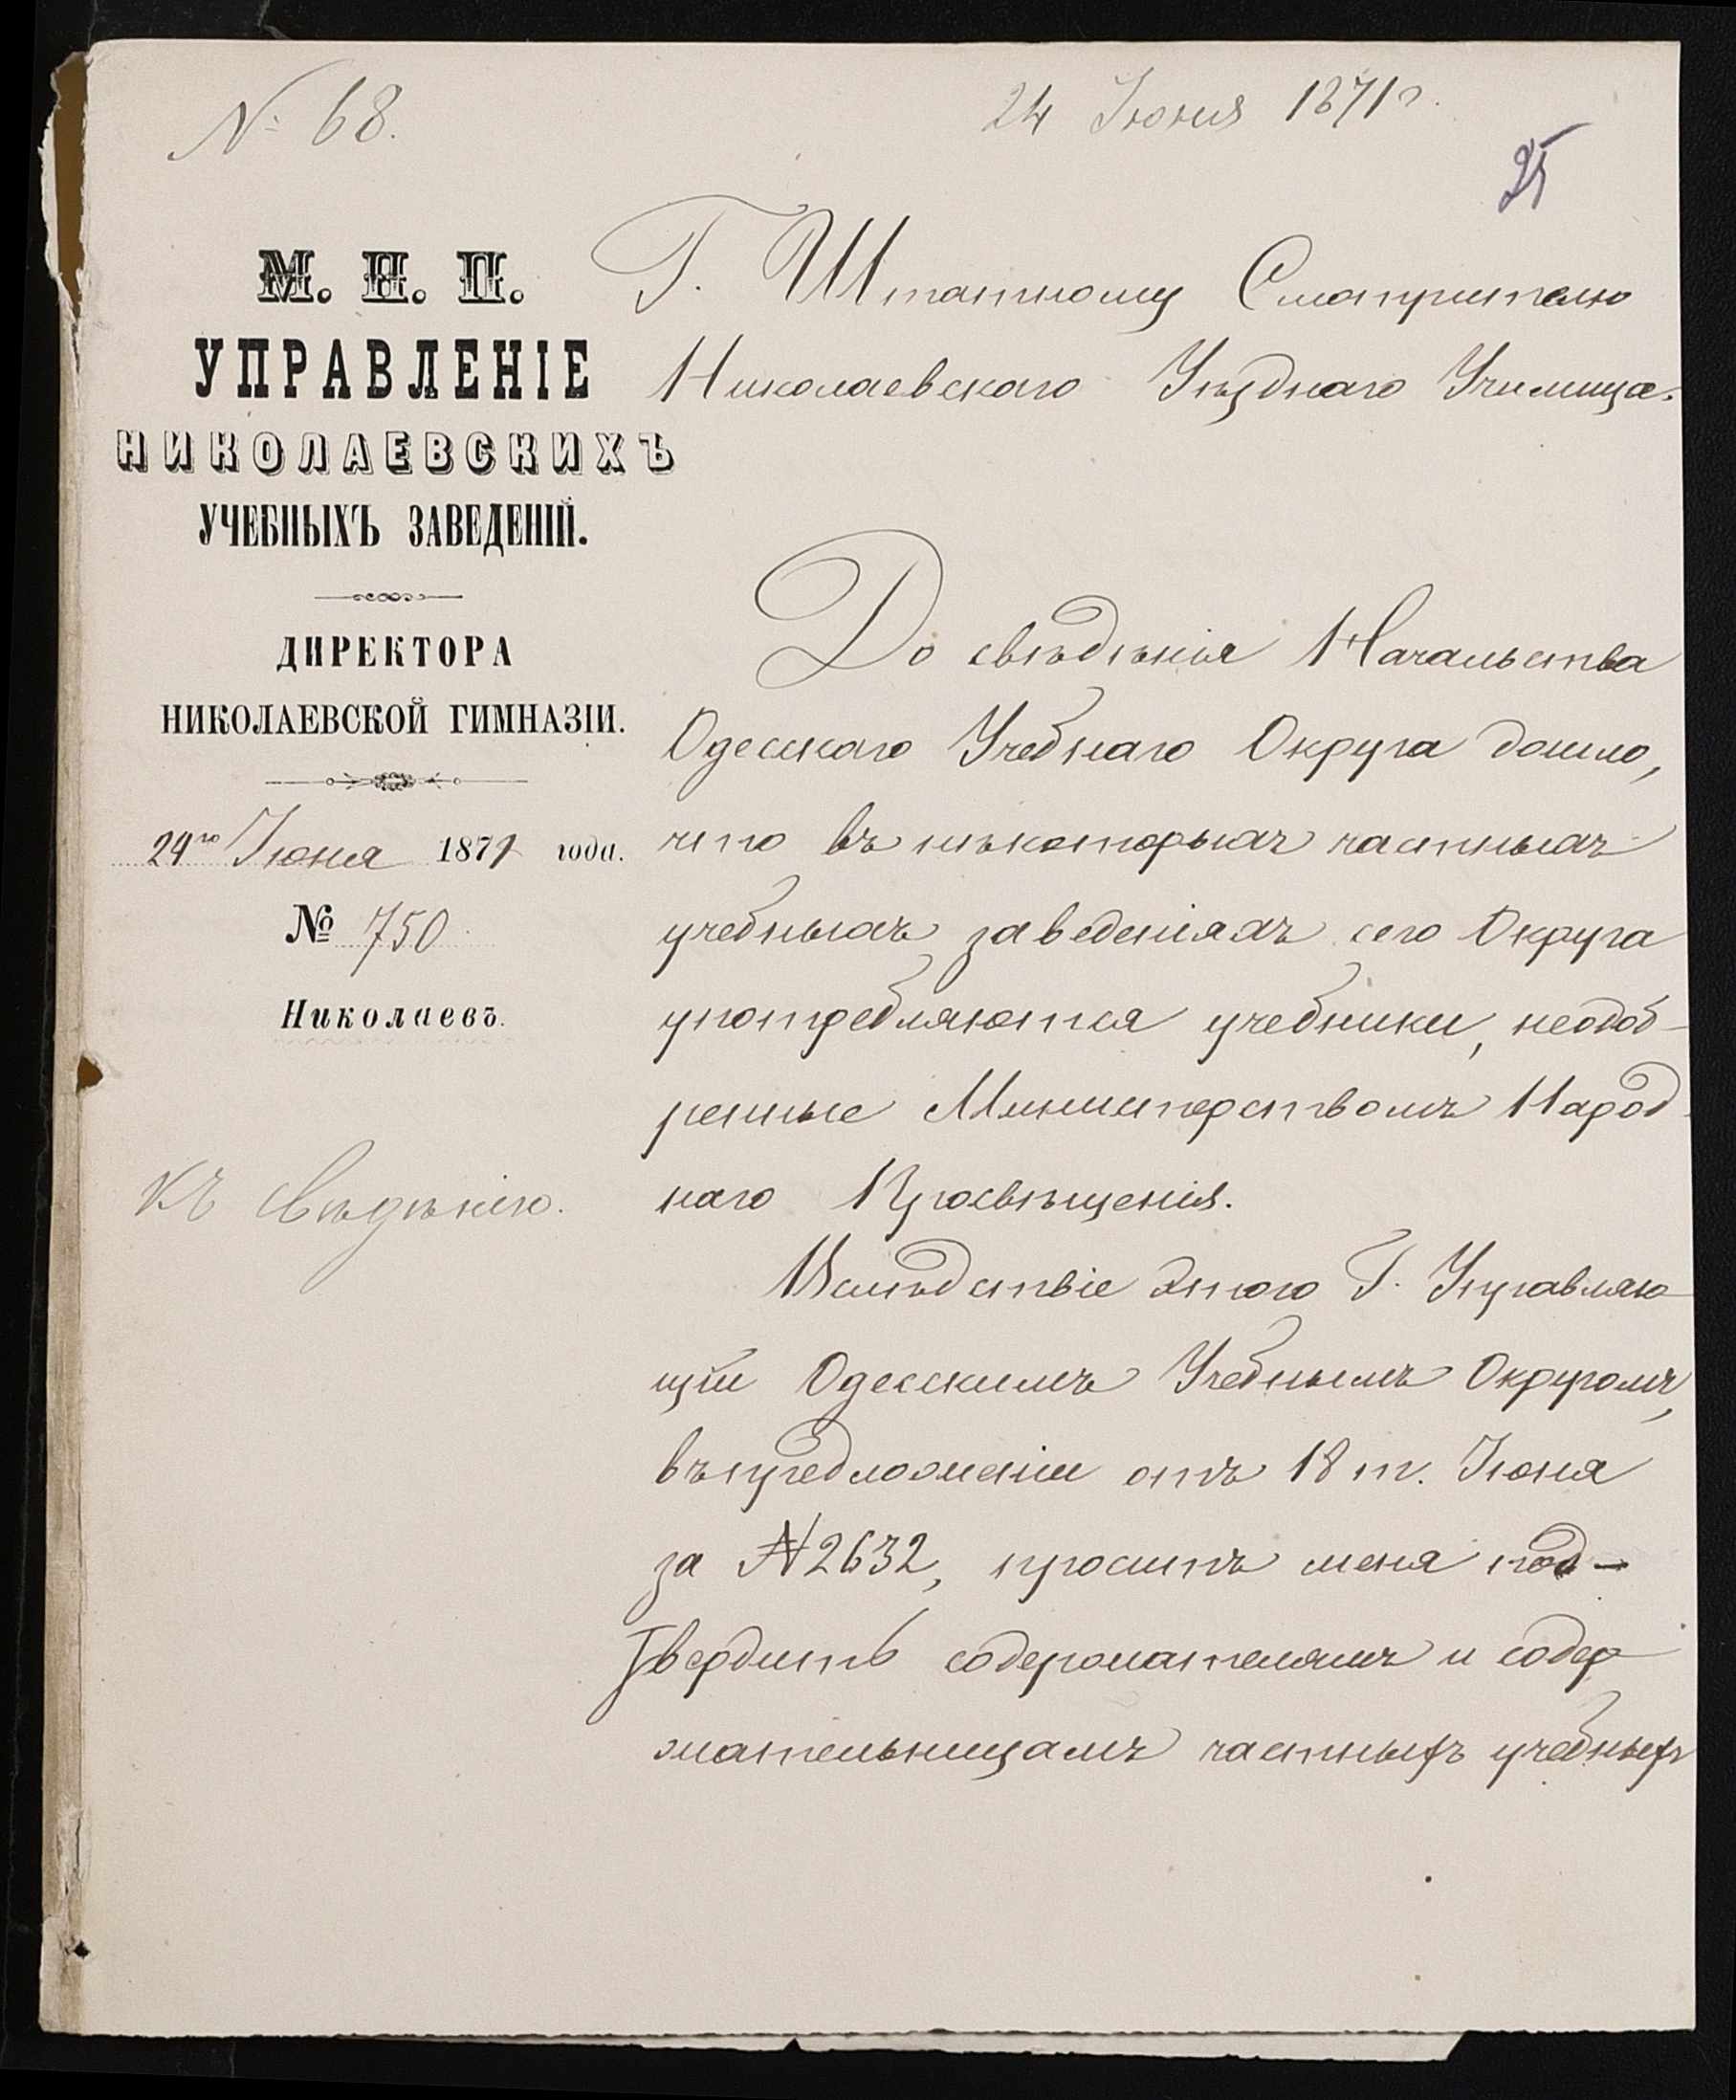 № 68.
24 Июня 1871 г.
25
М. Н. П.
УПРАВЛЕНІЕ
НИКОЛАЕВСКИХЪ
УЧЕБНЫХЪ ЗАВЕДЕНІЙ.
ДИРЕКТОРА
НИКОЛАЕВСКОЙ ГИМНАЗІИ.
24го Іюня 1871 года.
№ 750
Николаевъ.
Къ свѣдѣнію.
Г. Штатному Смотрителю
Николаевскаго Уѣзднаго Училища.
До свѣдѣнія Начальства
Одесскаго Учебнаго Округа дошло,
что въ нѣкоторыхъ частныхъ
учебныхъ заведеніяхъ сего Округа
употребляются учебники, неодоб-
ренные Министерствомъ Народ-
наго Просвѣщенія.
Вслѣдствіе этого Г. Управляю-
щій Одесскимъ Учебнымъ Округомъ,
въ предложеніи отъ 18 т. Іюня
за № 2632, проситъ меня под-
твердить содержателямъ и содер
жательницамъ частныхъ учебныхъ